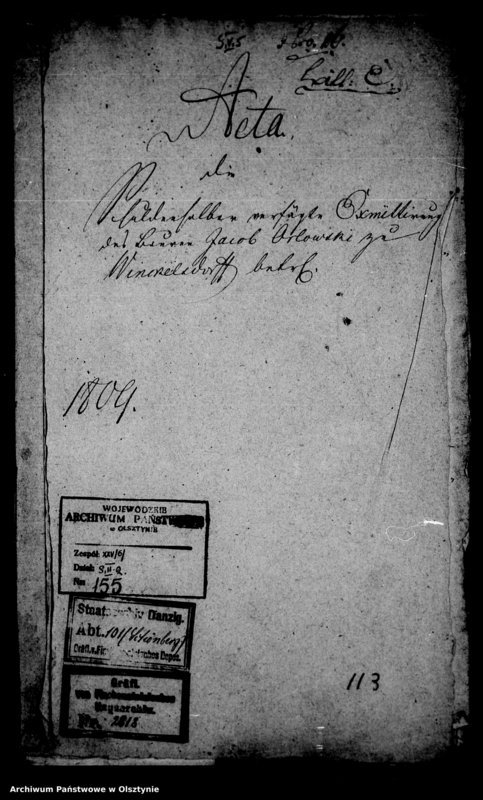 Acta.
die
Schuldenhalber verfügte Exmittirung
des Bauern Jacob Orlowski zu
Winckelsdorff betr.
1809.
WOJEWÓDZKIE
ARCHIWUM PAŃSTWOWE
w OLSZTYNIE
Zespół XXV/6/
Dział S.II.Q.
Nr. 155
Staatsarchiv Danzig.
Abt.
Gräfl.
Nr. 2618
113
Archiwum Państwowe w Olsztynie